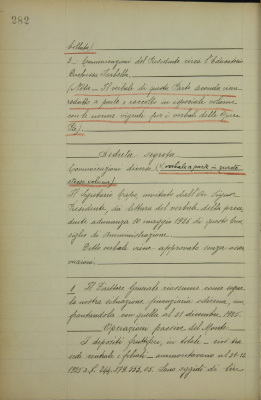 282
bollato)
3 - Comunicazioni del Presidente circa l'Educandato
Duchessa Isabella
(Nota - Il verbale di questa Parte seconda viene
redatto a parte e raccolto in speciale volume
con le norme vigenti per i verbali delle Opere
Pie).
Seduta segreta
Comunicazioni diverse (verbale a parte in questo
stesso volume)
Il Segretario Capo, invitato dall'On. Signor
Presidente, dà lettura del verbale della prece
dente adunanza 10 maggio 1926 di questo Con
siglio di amministrazione.
Detto verbale viene approvato senza osser
vazioni.
1 Il Direttore Generale riassume come segue
la nostra situazione finanziaria odierna, con
frontandola con quella al 31 dicembre 1925.
Operazioni passive del Monte.
I depositi fruttiferi, in totale - cioè tra
sede centrale e filiali - ammontavano al 31-12
1925 a L. 244.579.553.05. Sono oggidì di lire